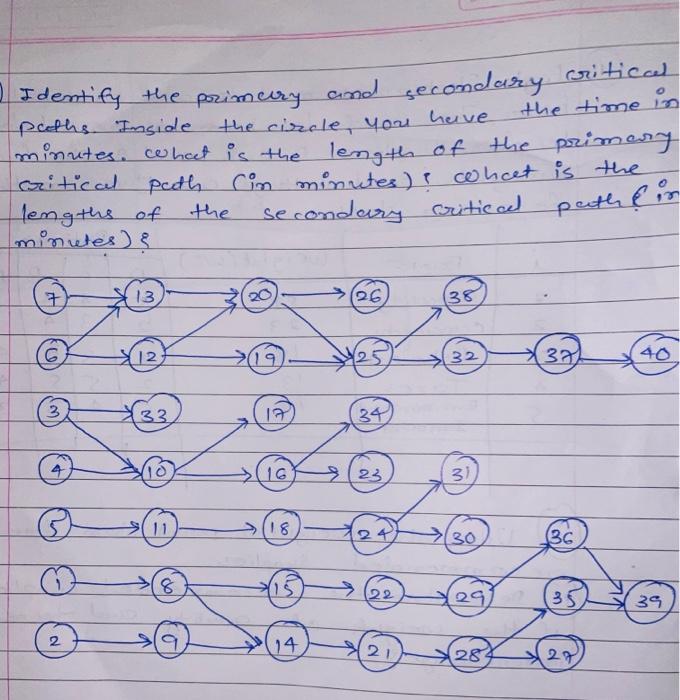 ) Identify the primary and secondary critical
paths. Inside the circle, you have the time in
minutes. What is the length of the primary
critical path (in minutes)? What is the
lengths of the secondary critical path (in
minutes)?
7 13 20 26 38
6 12 19 25 32 37 40
3 33 17 34
4 10 16 23 31
5 11 18 24 30 36
1 8 15 22 29 35 39
2 9 14 21 28 27